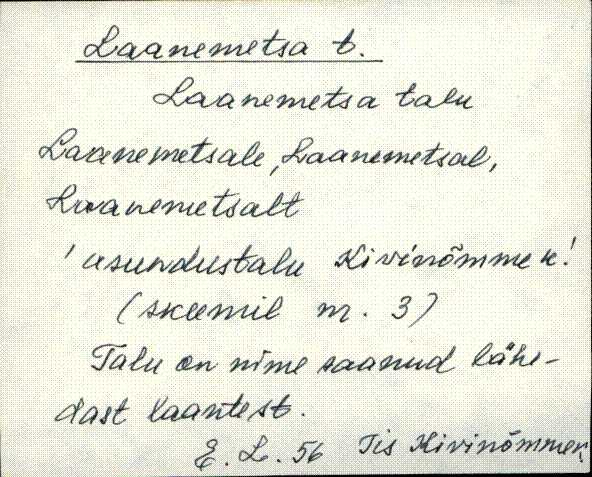 Laanemetsa t.
Laanemetsa talu
Laanemetsale, Laanemetsal,
Laanemetsalt
' asundustalu Kivinõmme k.'
(skeemil nr. 3)
Talu on nime saanud lähe-
dast laantest.
E. L. 56 Iis Kivinõmme k.